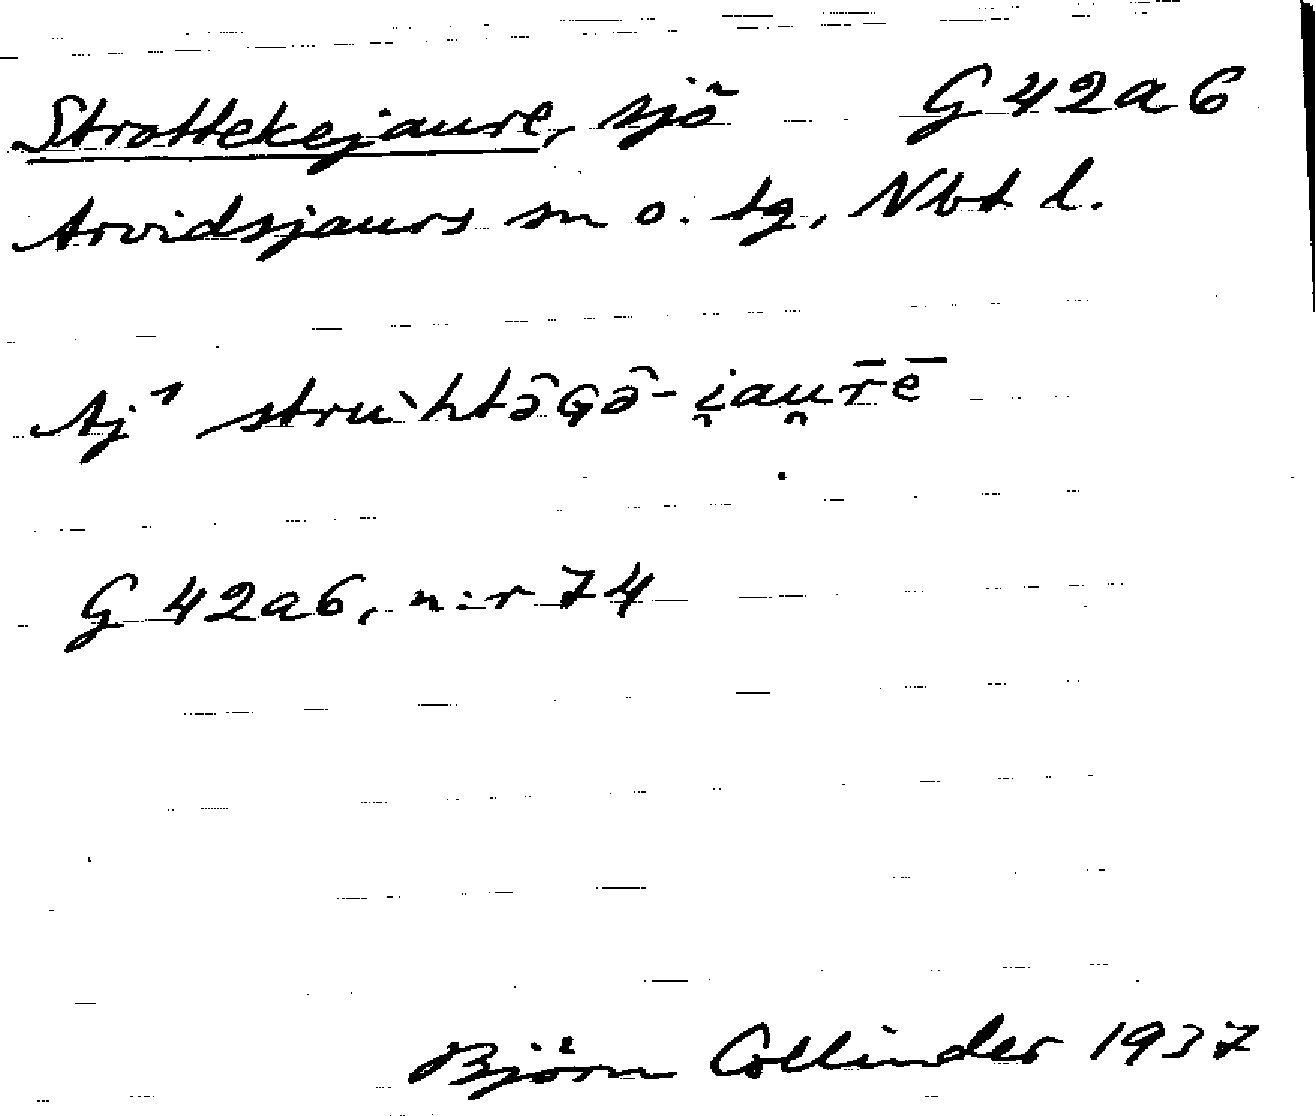 Strottekejaure, sjö G 42 a 6
Arvidsjaurs sn o. tg, Nbt l.
Aj¹ struˋhtə̑Gə̑-i̯au̯r̄ē
G 42 a 6, n:r 74
Björn Collinder 1937